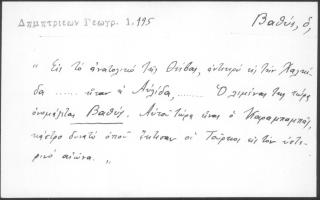 Δημητριέων Γεωγρ. 1,195
Βαθύς, ὁ,
"Εἰς τὸ ἀνατολικὸ τῆς Θείβας, ἀντικρὺ εἰς τὴν Χαλκί
δα ...... ἦταν ἡ Αὐλίδα, ........ Ὁ λιμιόνας της τώρα
ὀνομάζεται Βαθύς. Αὐτοῦ τώρα εἶναι ὁ Καραμπαμπᾶς,
κάστρο δυνατὸ ὁποῦ ἔκτισαν οἱ Τοῦρκοι εἰς τὸν ὑστε-
ρινὸ αἰῶνα.,,